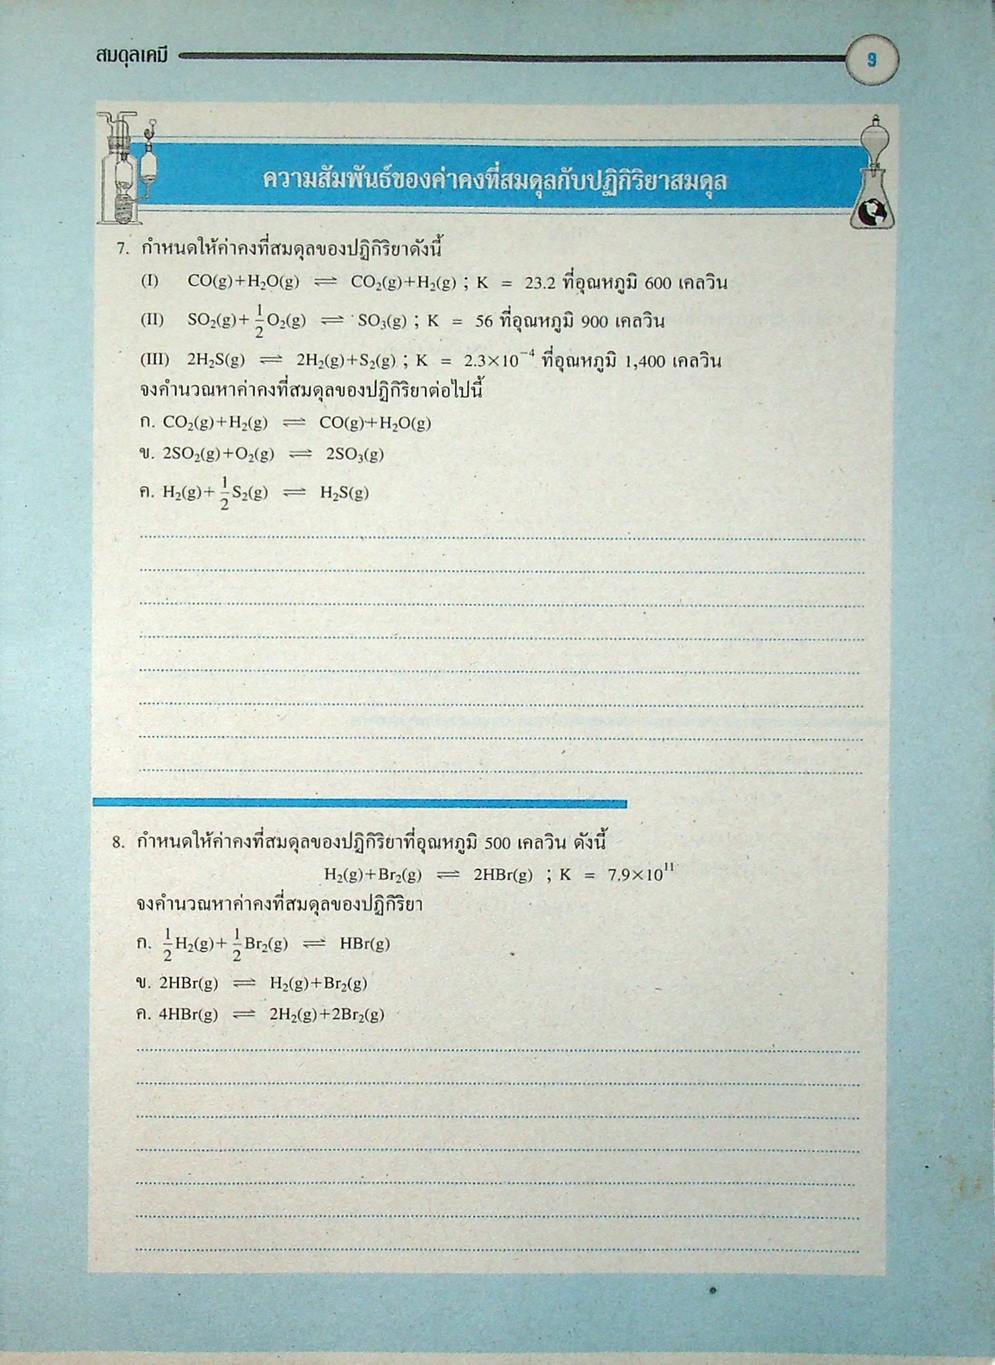 สมดุลเคมี 9
ความสัมพันธ์ของค่าคงที่สมดุลกับปฏิกิริยาสมดุล
7. กำหนดให้ค่าคงที่สมดุลของปฏิกิริยาดังนี้
(I) CO(g)+H₂O(g) ⇌ CO₂(g)+H₂(g) ; K = 23.2 ที่อุณหภูมิ 600 เคลวิน
(II) SO₂(g)+½O₂(g) ⇌ SO₃(g) ; K = 56 ที่อุณหภูมิ 900 เคลวิน
(III) 2H₂S(g) ⇌ 2H₂(g)+S₂(g) ; K = 2.3×10⁻⁴ ที่อุณหภูมิ 1,400 เคลวิน
จงคำนวณหาค่าคงที่สมดุลของปฏิกิริยาต่อไปนี้
ก. CO₂(g)+H₂(g) ⇌ CO(g)+H₂O(g)
ข. 2SO₂(g)+O₂(g) ⇌ 2SO₃(g)
ค. H₂(g)+½S₂(g) ⇌ H₂S(g)
8. กำหนดให้ค่าคงที่สมดุลของปฏิกิริยาที่อุณหภูมิ 500 เคลวิน ดังนี้
H₂(g)+Br₂(g) ⇌ 2HBr(g) ; K = 7.9×10¹¹
จงคำนวณหาค่าคงที่สมดุลของปฏิกิริยา
ก. ½H₂(g)+½Br₂(g) ⇌ HBr(g)
ข. 2HBr(g) ⇌ H₂(g)+Br₂(g)
ค. 4HBr(g) ⇌ 2H₂(g)+2Br₂(g)